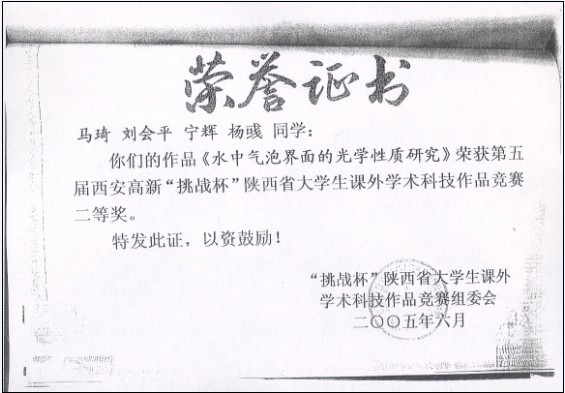 荣誉证书
马琦 刘会平 宁辉 杨彧 同学：
你们的作品《水中气泡界面的光学性质研究》荣获第五
届西安高新“挑战杯”陕西省大学生课外学术科技作品竞赛
二等奖。
特发此证，以资鼓励！
“挑战杯”陕西省大学生课外
学术科技作品竞赛组委会
二〇〇五年六月